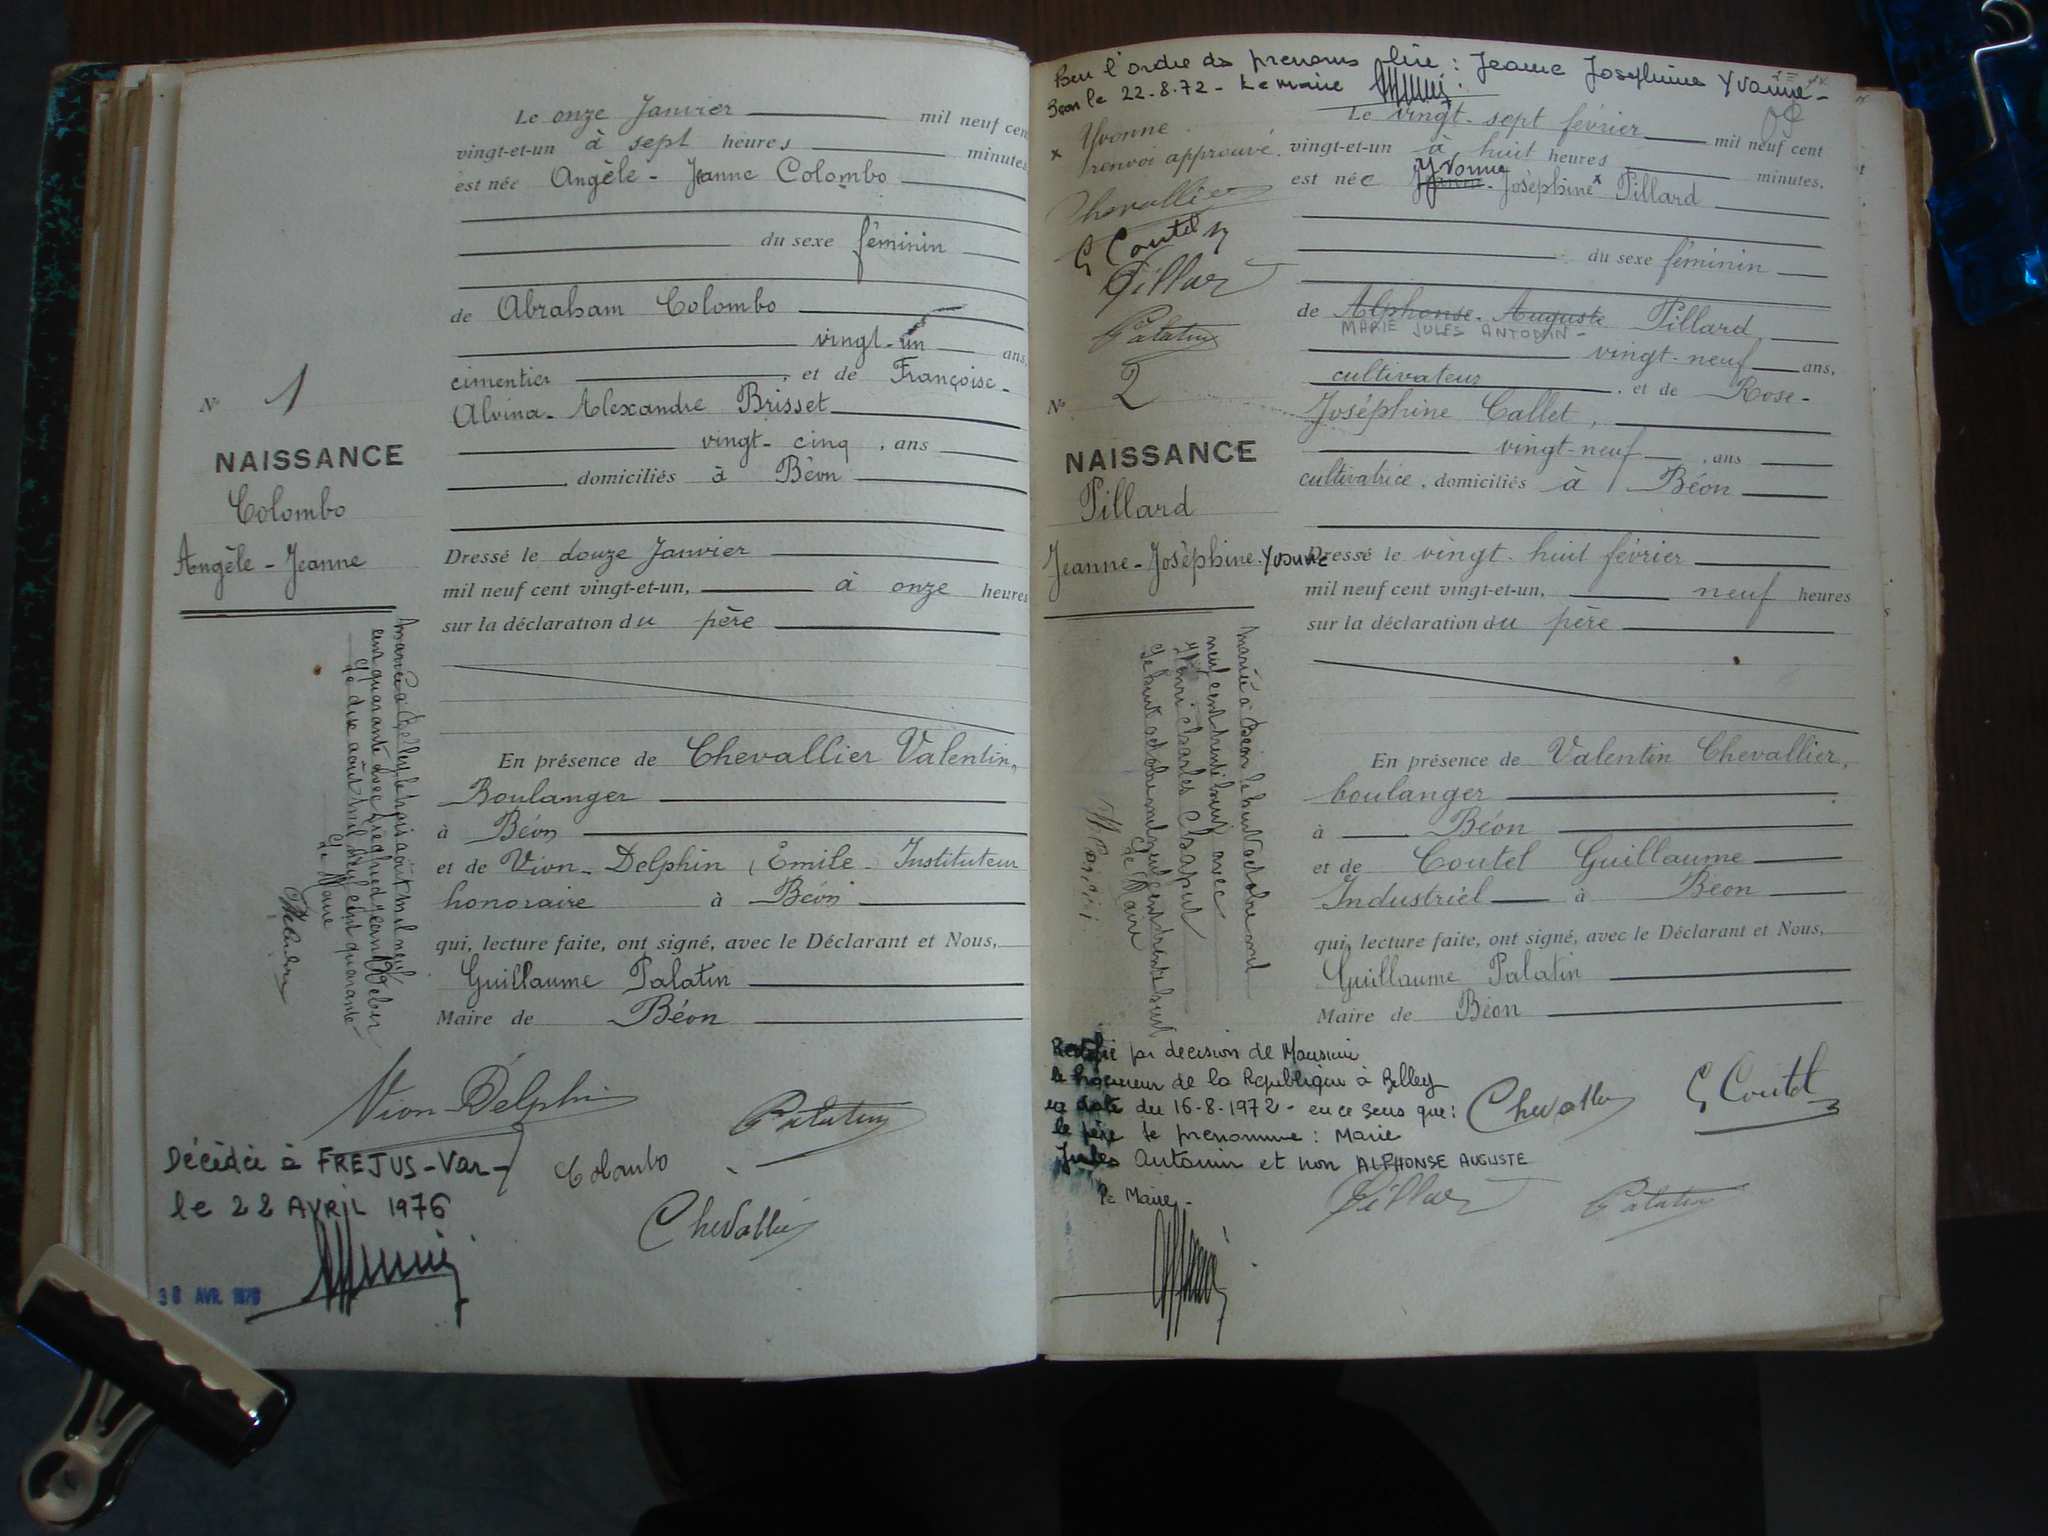 Le onze Janvier mil neuf cent
vingt-et-un à sept heures minutes
est née Angèle - Jeanne Colombo
du sexe féminin
de Abraham Colombo
vingt-un ans,
cimentier , et de Françoise-
Alvina- Alexandre Brisset
vingt-cinq , ans
, domiciliés à Béon
Dressé le douze Janvier
mil neuf cent vingt-et-un, à onze heures
sur la déclaration du père
En présence de Chevallier Valentin,
Boulanger
à Béon
et de Vion-Delphin (Emile- Instituteur
honoraire à Béon
qui, lecture faite, ont signé, avec le Déclarant et Nous,
Guillaume Palatin
Maire de Béon
N° 1
NAISSANCE
Colombo
Angèle - Jeanne
mariée à Belley le trois août mil neuf
cent quarante avec Weber
Le dix août mil neuf cent quarante
Le Maire
Vion-Delphin
Palatin
Colombo
Chevallier
Décédée à FREJUS-Var-
le 22 AVRIL 1976
30 AVR. 1976
Pour l'ordre des prenoms lire : Jeanne Josephine Yvonne-
Beon le 22-8-72 - Le Maire
x Yvonne
renvoi approuvé.
Chevallier
G Coutel
Pillard
Palatin
N° 2
NAISSANCE
Pillard
Jeanne-Josèphine-Yvonne
Le vingt-sept février mil neuf cent
vingt-et-un à huit heures minutes,
Yvonne
est née Jeanne-Josèphine x Pillard
du sexe féminin
de Alphonse-Auguste Pillard
MARIE JULES ANTONIN-
vingt-neuf ans,
cultivateur , et de Rose-
Joséphine Callet,
vingt-neuf , ans
cultivatrice, domiciliés à Béon
Dressé le vingt-huit février
mil neuf cent vingt-et-un, neuf heures
sur la déclaration du père
En présence de Valentin Chevallier,
boulanger
à Béon
et de Coutel Guillaume
Industriel à Béon
qui, lecture faite, ont signé, avec le Déclarant et Nous,
Guillaume Palatin
Maire de Béon
mariée à Béon le huit octobre mil
neuf cent trente huit avec
Henri Charles Chaput
Le huit octobre mil neuf cent trente huit
Le Maire
Rectifié par decision de Monsieur
le Procureur de la République à Belley
en date du 16-8-1972- en ce sens que :
le père se prenomme : Marie
Jules Antonin et non ALPHONSE AUGUSTE
Le Maire-
Chevallier
G Coutel
Pillard
Palatin